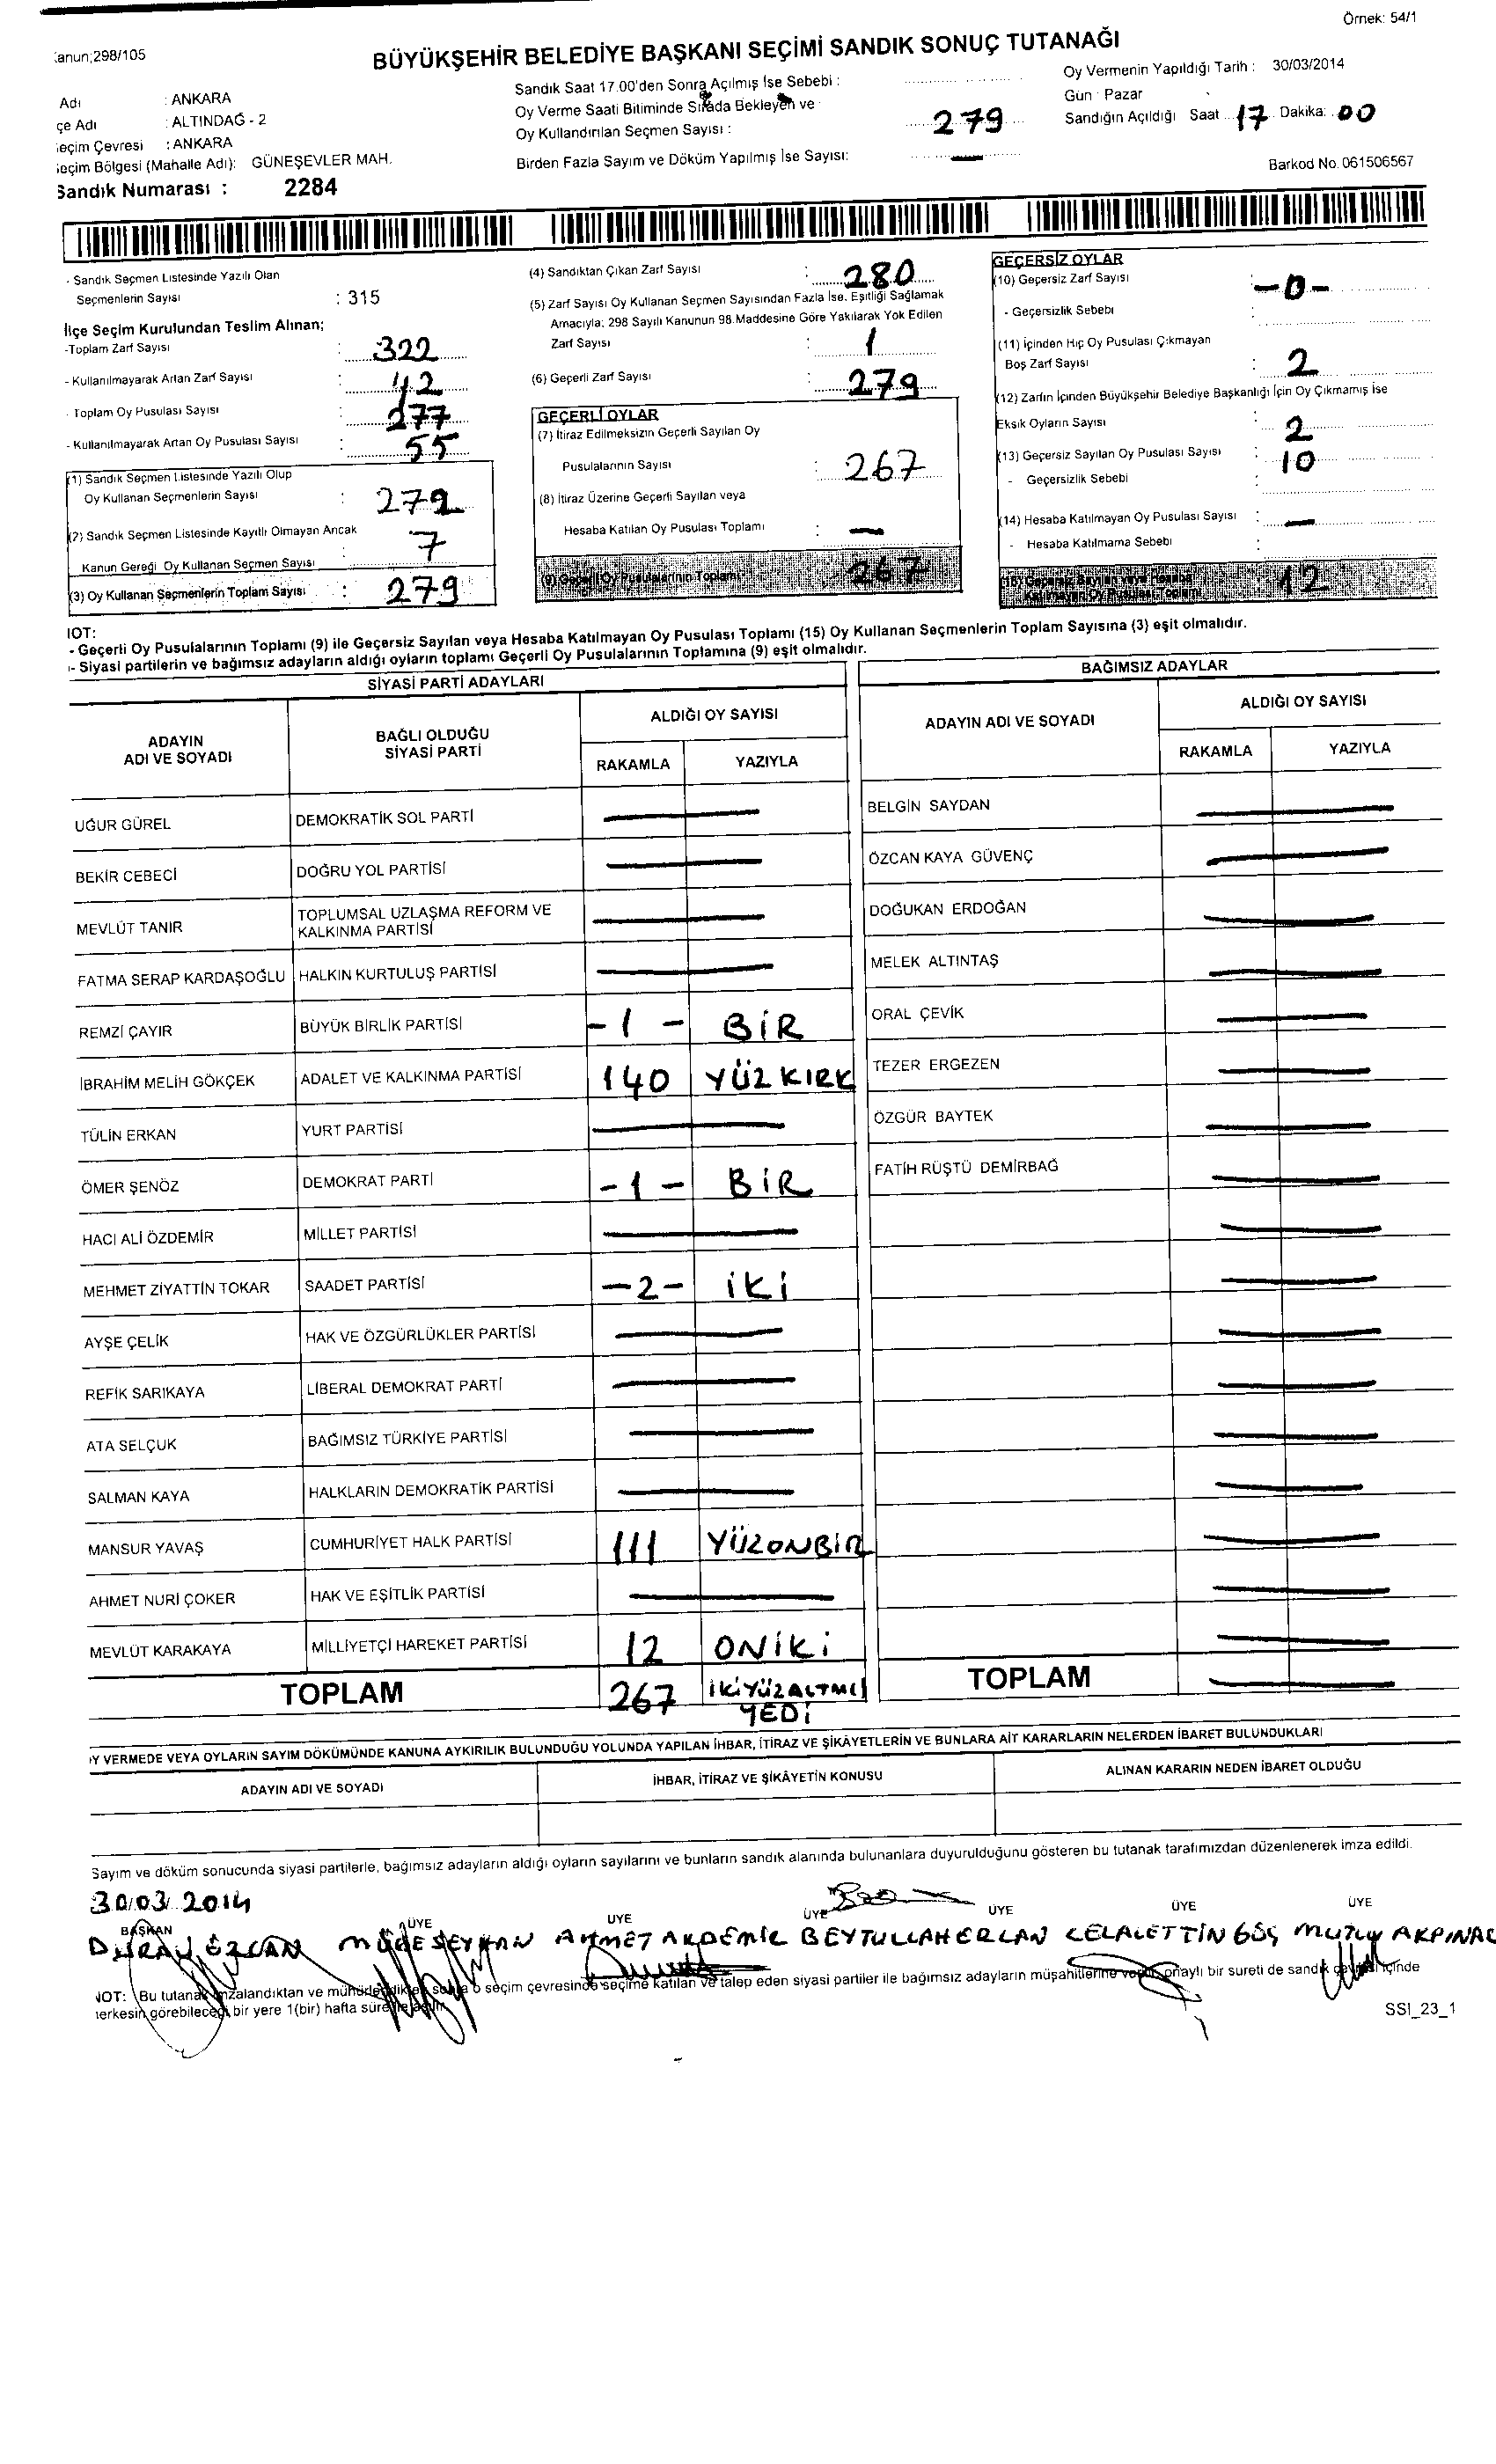 Örnek: 54/1
anun;298/105
BÜYÜKŞEHİR BELEDİYE BAŞKANI SEÇİMİ SANDIK SONUÇ TUTANAĞI
Adı : ANKARA
çe Adı : ALTINDAĞ - 2
eçim Çevresi : ANKARA
eçim Bölgesi (Mahalle Adı): GÜNEŞEVLER MAH.
Sandık Numarası : 2284
Sandık Saat 17.00'den Sonra Açılmış İse Sebebi :
Oy Verme Saati Bitiminde Sırada Bekleyen ve
Oy Kullandırılan Seçmen Sayısı : 279
Birden Fazla Sayım ve Döküm Yapılmış İse Sayısı: —
Oy Vermenin Yapıldığı Tarih : 30/03/2014
Gün : Pazar
Sandığın Açıldığı Saat 17 Dakika: 00
Barkod No. 061506567
- Sandık Seçmen Listesinde Yazılı Olan
Seçmenlerin Sayısı : 315
İlçe Seçim Kurulundan Teslim Alınan;
-Toplam Zarf Sayısı : 322
- Kullanılmayarak Artan Zarf Sayısı : 42
- Toplam Oy Pusulası Sayısı : 277
- Kullanılmayarak Artan Oy Pusulası Sayısı : 55
(1) Sandık Seçmen Listesinde Yazılı Olup
Oy Kullanan Seçmenlerin Sayısı : 272
(2) Sandık Seçmen Listesinde Kayıtlı Olmayan Ancak
Kanun Gereği Oy Kullanan Seçmen Sayısı : 7
(3) Oy Kullanan Seçmenlerin Toplam Sayısı : 279
(4) Sandıktan Çıkan Zarf Sayısı : 280
(5) Zarf Sayısı Oy Kullanan Seçmen Sayısından Fazla İse. Eşitliği Sağlamak
Amacıyla; 298 Sayılı Kanunun 98.Maddesine Göre Yakılarak Yok Edilen
Zarf Sayısı : 1
(6) Geçerli Zarf Sayısı : 279
GEÇERLİ OYLAR
(7) İtiraz Edilmeksizin Geçerli Sayılan Oy
Pusulalarının Sayısı : 267
(8) İtiraz Üzerine Geçerli Sayılan veya
Hesaba Katılan Oy Pusulası Toplamı : —
(9) Geçerli Oy Pusulalarının Toplamı : 267
GEÇERSİZ OYLAR
(10) Geçersiz Zarf Sayısı : -0-
- Geçersizlik Sebebi :
(11) İçinden Hiç Oy Pusulası Çıkmayan
Boş Zarf Sayısı : 2
(12) Zarfın İçinden Büyükşehir Belediye Başkanlığı İçin Oy Çıkmamış İse
Eksik Oyların Sayısı : 2
(13) Geçersiz Sayılan Oy Pusulası Sayısı : 10
- Geçersizlik Sebebi :
(14) Hesaba Katılmayan Oy Pusulası Sayısı : —
- Hesaba Katılmama Sebebi :
(15) Geçersiz Sayılan veya Hesaba
Katılmayan Oy Pusulası Toplamı 12
IOT:
- Geçerli Oy Pusulalarının Toplamı (9) ile Geçersiz Sayılan veya Hesaba Katılmayan Oy Pusulası Toplamı (15) Oy Kullanan Seçmenlerin Toplam Sayısına (3) eşit olmalıdır.
- Siyasi partilerin ve bağımsız adayların aldığı oyların toplamı Geçerli Oy Pusulalarının Toplamına (9) eşit olmalıdır.
SİYASİ PARTİ ADAYLARI
ADAYIN ADI VE SOYADI
BAĞLI OLDUĞU SİYASİ PARTİ
ALDIĞI OY SAYISI
RAKAMLA YAZIYLA
UĞUR GÜREL DEMOKRATİK SOL PARTİ —
BEKİR CEBECİ DOĞRU YOL PARTİSİ —
MEVLÜT TANIR TOPLUMSAL UZLAŞMA REFORM VE
KALKINMA PARTİSİ —
FATMA SERAP KARDAŞOĞLU HALKIN KURTULUŞ PARTİSİ —
REMZİ ÇAYIR BÜYÜK BİRLİK PARTİSİ -1- BİR
İBRAHİM MELİH GÖKÇEK ADALET VE KALKINMA PARTİSİ 140 YÜZKIRK
TÜLİN ERKAN YURT PARTİSİ —
ÖMER ŞENÖZ DEMOKRAT PARTİ -1- BİR
HACI ALİ ÖZDEMİR MİLLET PARTİSİ —
MEHMET ZİYATTİN TOKAR SAADET PARTİSİ -2- İKİ
AYŞE ÇELİK HAK VE ÖZGÜRLÜKLER PARTİSİ —
REFİK SARIKAYA LİBERAL DEMOKRAT PARTİ —
ATA SELÇUK BAĞIMSIZ TÜRKİYE PARTİSİ —
SALMAN KAYA HALKLARIN DEMOKRATİK PARTİSİ —
MANSUR YAVAŞ CUMHURİYET HALK PARTİSİ 111 YÜZONBİR
AHMET NURİ ÇOKER HAK VE EŞİTLİK PARTİSİ —
MEVLÜT KARAKAYA MİLLİYETÇİ HAREKET PARTİSİ 12 ONİKİ
TOPLAM 267 İKİYÜZALTMIŞ
YEDİ
BAĞIMSIZ ADAYLAR
ADAYIN ADI VE SOYADI
ALDIĞI OY SAYISI
RAKAMLA YAZIYLA
BELGİN SAYDAN —
ÖZCAN KAYA GÜVENÇ —
DOĞUKAN ERDOĞAN —
MELEK ALTINTAŞ —
ORAL ÇEVİK —
TEZER ERGEZEN —
ÖZGÜR BAYTEK —
FATİH RÜŞTÜ DEMİRBAĞ —
TOPLAM —
Y VERMEDE VEYA OYLARIN SAYIM DÖKÜMÜNDE KANUNA AYKIRILIK BULUNDUĞU YOLUNDA YAPILAN İHBAR, İTİRAZ VE ŞİKÂYETLERİN VE BUNLARA AİT KARARLARIN NELERDEN İBARET BULUNDUKLARI
ADAYIN ADI VE SOYADI İHBAR, İTİRAZ VE ŞİKÂYETİN KONUSU ALINAN KARARIN NEDEN İBARET OLDUĞU
Sayım ve döküm sonucunda siyasi partilerle, bağımsız adayların aldığı oyların sayılarını ve bunların sandık alanında bulunanlara duyurulduğunu gösteren bu tutanak tarafımızdan düzenlenerek imza edildi.
30/03/2014
BAŞKAN ÜYE ÜYE ÜYE ÜYE ÜYE ÜYE
DURAN ÖZCAN MÜGE SEYHAN AHMET AKDEMİR BEYTULLAH ERCAN CELALETTİN GÖÇ MUTLU AKPINAR
NOT: Bu tutanak imzalandıktan ve mühürlendikten sonra o seçim çevresinde seçime katılan ve talep eden siyasi partiler ile bağımsız adayların müşahitlerine onaylı bir sureti de sandık çevresi içinde
herkesin görebileceği bir yere 1(bir) hafta süre ile asılır.
SSI_23_1